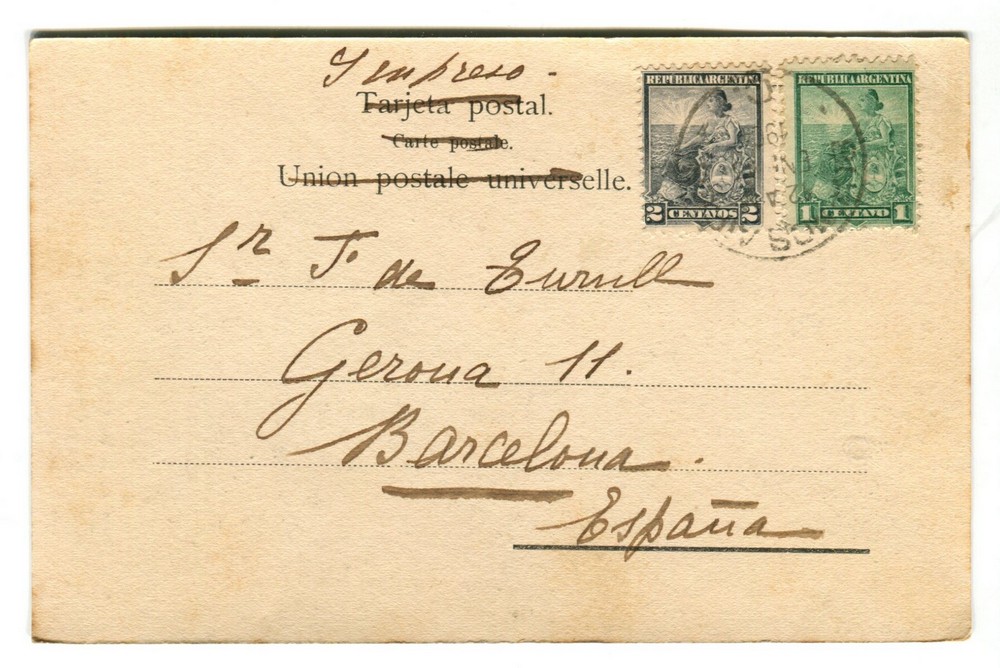 Impreso.
Tarjeta postal.
Carte postale.
Union postale universelle.
REPÚBLICA ARGENTINA
2 CENTAVOS 2
REPÚBLICA ARGENTINA
1 CENTAVO 1
Sr. F. de Turull
Gerona 11.
Barcelona.
España